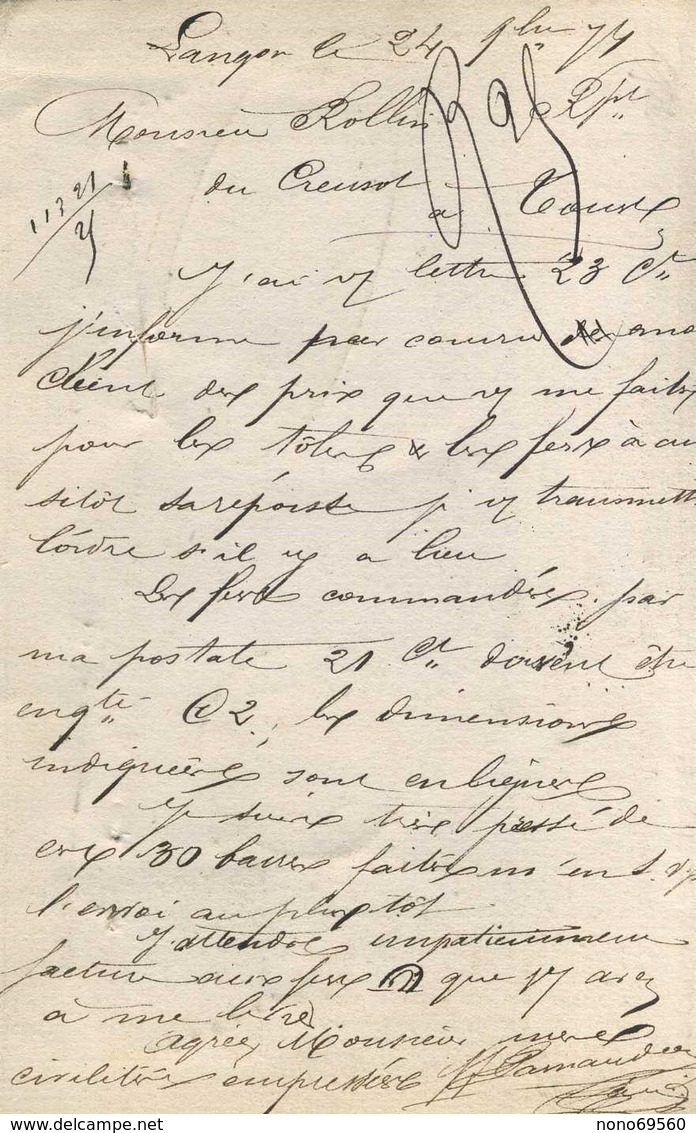 Langon le 24 9bre 74
Monsieur Rollin Dépt
du Creusot à Tours
11321
25
J'ai vg lettre 23 Ct
j'informe par courrier mon
client des prix que vs me faites
pour les tôles & les fers à au
sitôt sa réponse je vs transmett
l'ordre s'il y a lieu
Les fers commandés par
ma postale 21 Ct doivent être
en qté C 2, les dimensions
indiquées sont en lignes
Je suis très pressé de
ces 30 barres faites m'en s.v.p
l'envoi au plus tôt
J'attends impatiemment
facture aux fers que vs avez
à me livrer
Agréez Monsieur mes
civilités empressées
nono69560